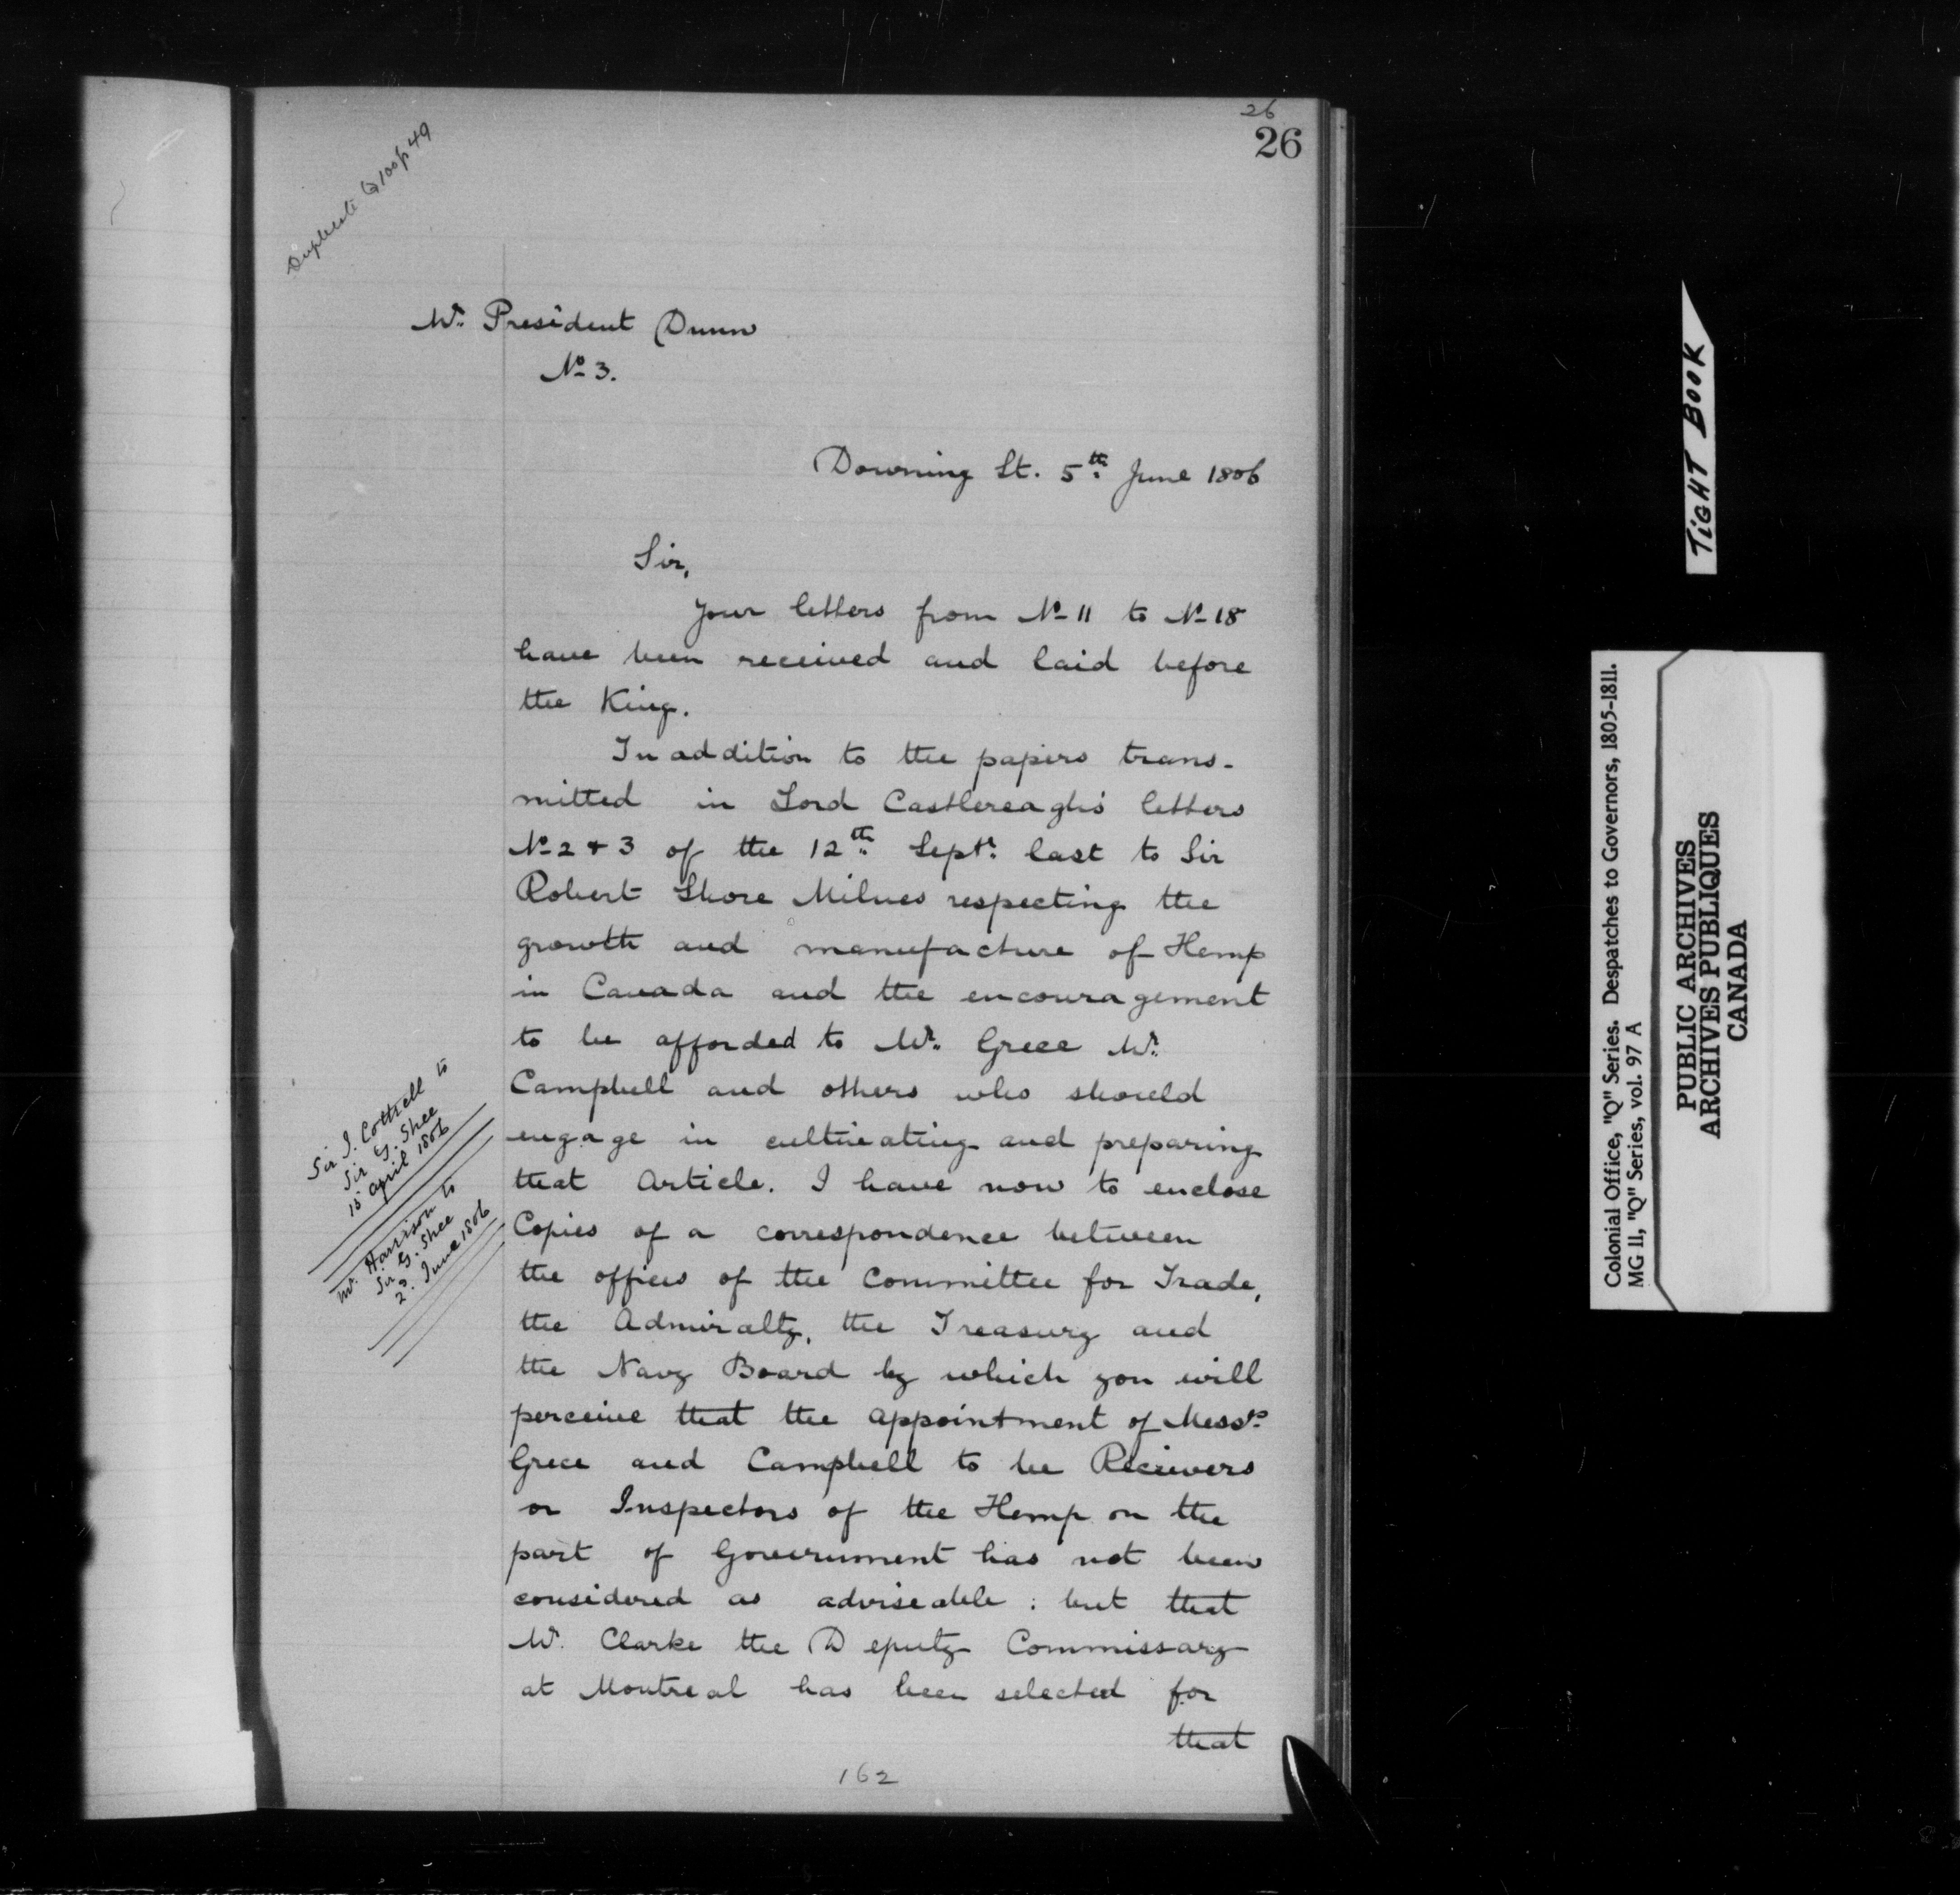 26
26
Duplicate Q 100 p 49
Mr. President Dunn
No 3.
Downing St. 5th June 1806
Sir,
Your letters from No 11 to No 18
have been received and laid before
the King.
In addition to the papers trans-
mitted in Lord Castlereagh's letters
No 2 & 3 of the 12th Septr. last to Sir
Robert Shore Milnes respecting the
growth and manufacture of Hemp
in Canada and the encouragement
to be afforded to Mr. Grece Mr.
Campbell and others who should
engage in cultivating and preparing
that Article. I have now to enclose
Copies of a correspondence between
the offices of the Committee for Trade,
the Admiralty, the Treasury and
the Navy Board by which you will
perceive that the appointment of Messrs.
Grece and Campbell to be Receivers
or Inspectors of the Hemp on the
part of Government has not been
considered as adviseable : but that
Mr. Clarke the Deputy Commissary
at Montreal has been selected for
that
Sir J. Cottrell to
Sir G. Shee
15 April 1806
Mr. Harrison to
Sir G. Shee
2. June 1806
162
TIGHT BOOK
Colonial Office, "Q" Series. Despatches to Governors, 1805-1811.
MG 11, "Q" Series, vol. 97 A
PUBLIC ARCHIVES
ARCHIVES PUBLIQUES
CANADA